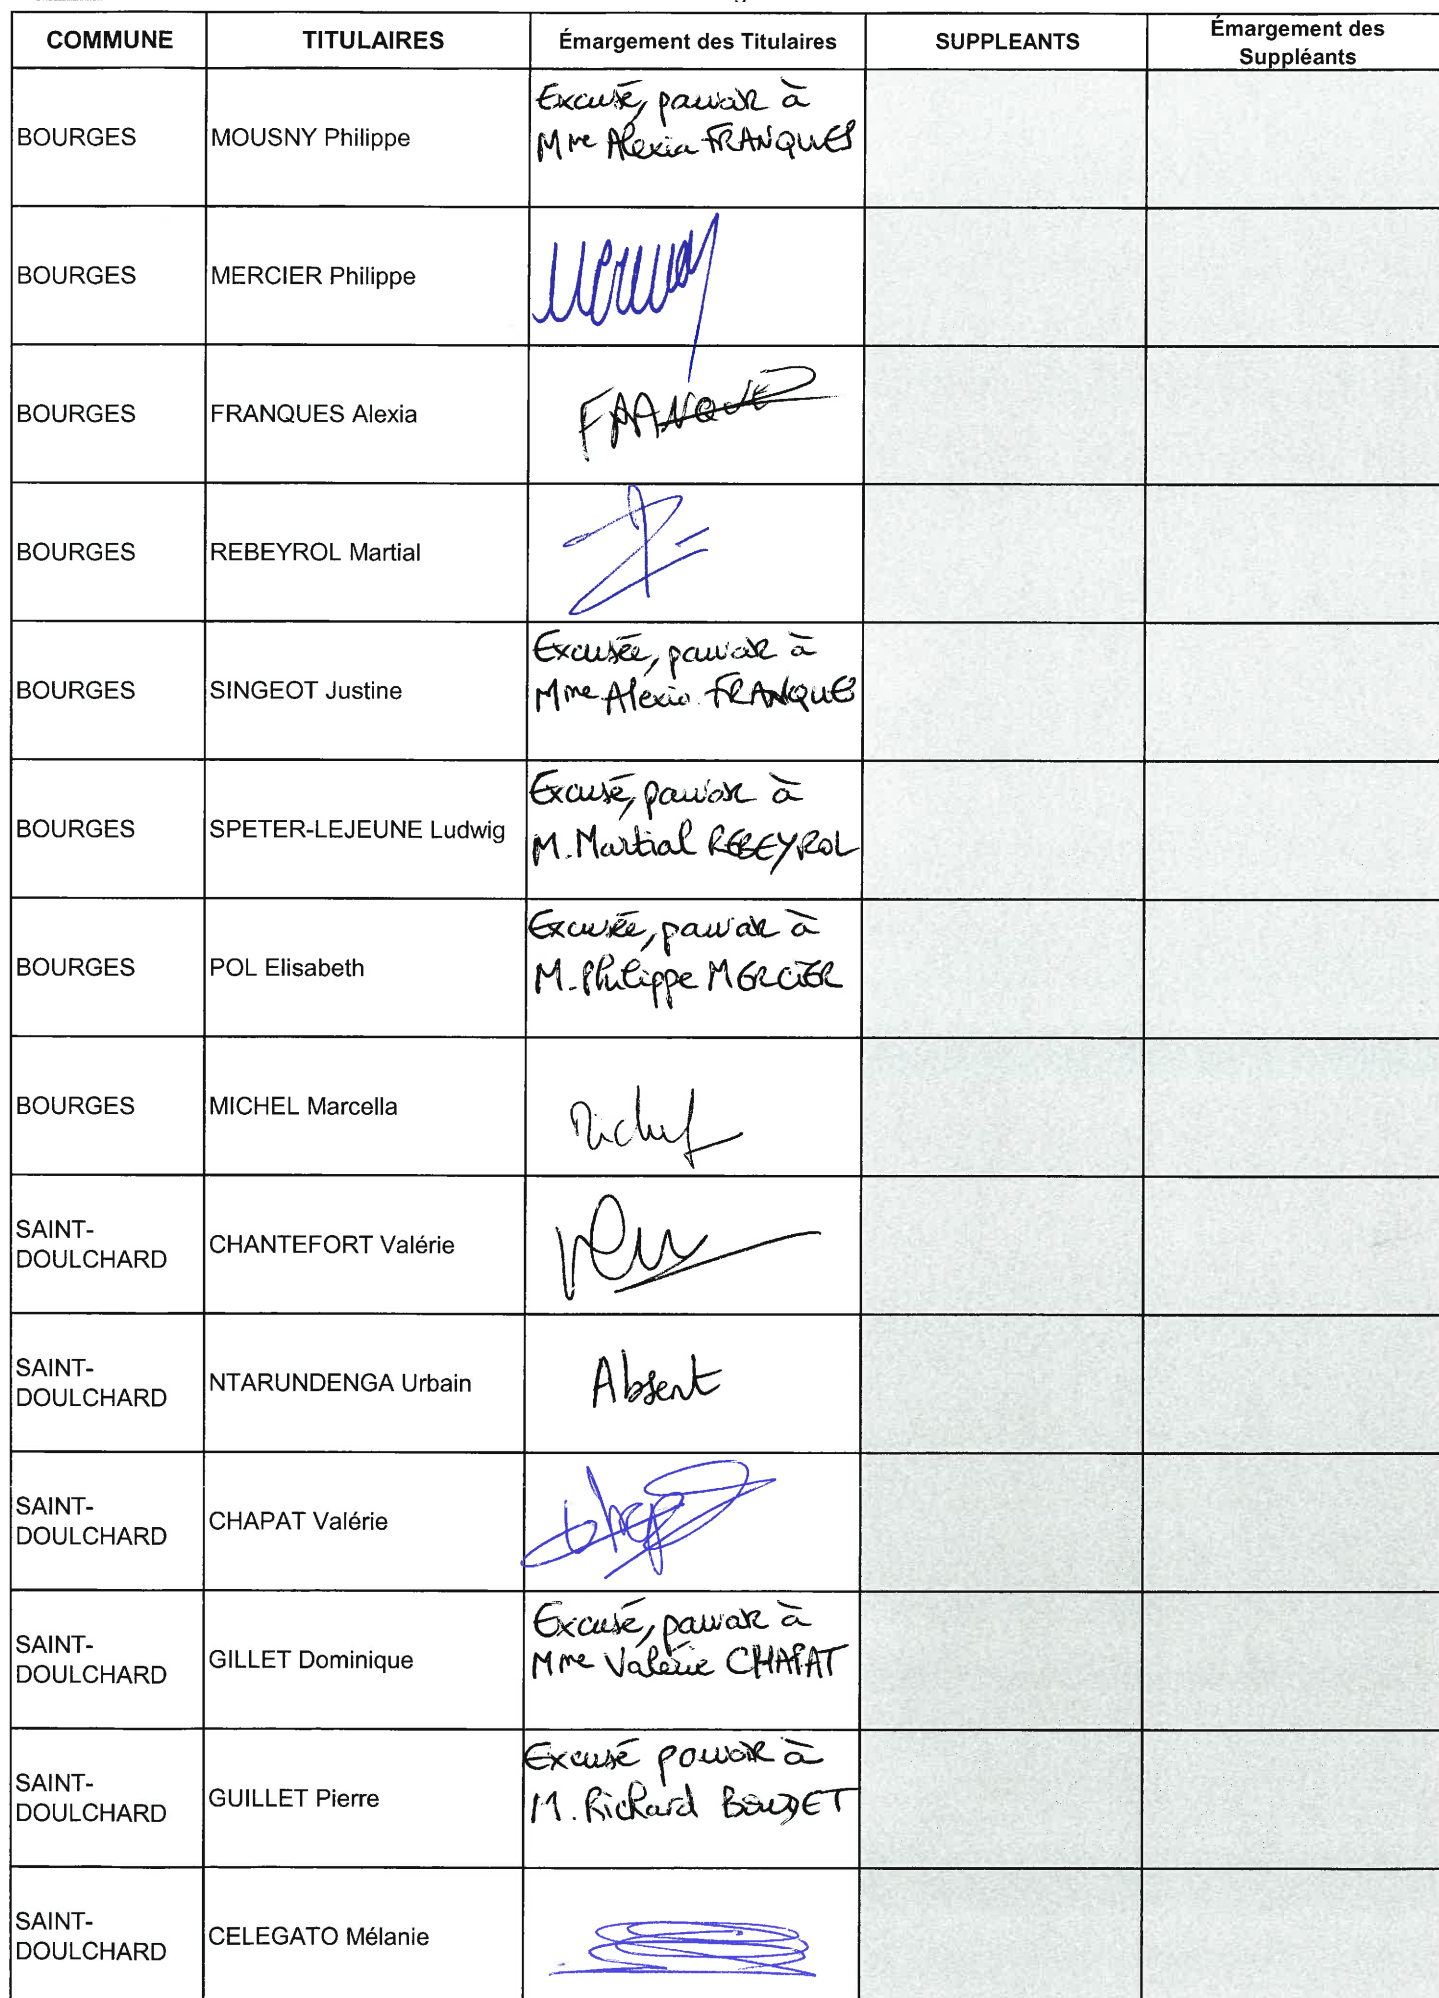 COMMUNE TITULAIRES Émargement des Titulaires SUPPLEANTS Émargement des
Suppléants
BOURGES MOUSNY Philippe Excusé, pouvoir à
Mme Alexia FRANQUES
BOURGES MERCIER Philippe
BOURGES FRANQUES Alexia FRANQUES
BOURGES REBEYROL Martial
BOURGES SINGEOT Justine Excusée, pouvoir à
Mme Alexia FRANQUES
BOURGES SPETER-LEJEUNE Ludwig Excusé, pouvoir à
M. Martial REBEYROL
BOURGES POL Elisabeth Excusée, pouvoir à
M. Philippe MERCIER
BOURGES MICHEL Marcella
SAINT-
DOULCHARD CHANTEFORT Valérie
SAINT-
DOULCHARD NTARUNDENGA Urbain Absent
SAINT-
DOULCHARD CHAPAT Valérie
SAINT-
DOULCHARD GILLET Dominique Excusé, pouvoir à
Mme Valérie CHAPAT
SAINT-
DOULCHARD GUILLET Pierre Excusé pouvoir à
M. Richard BOUDET
SAINT-
DOULCHARD CELEGATO Mélanie